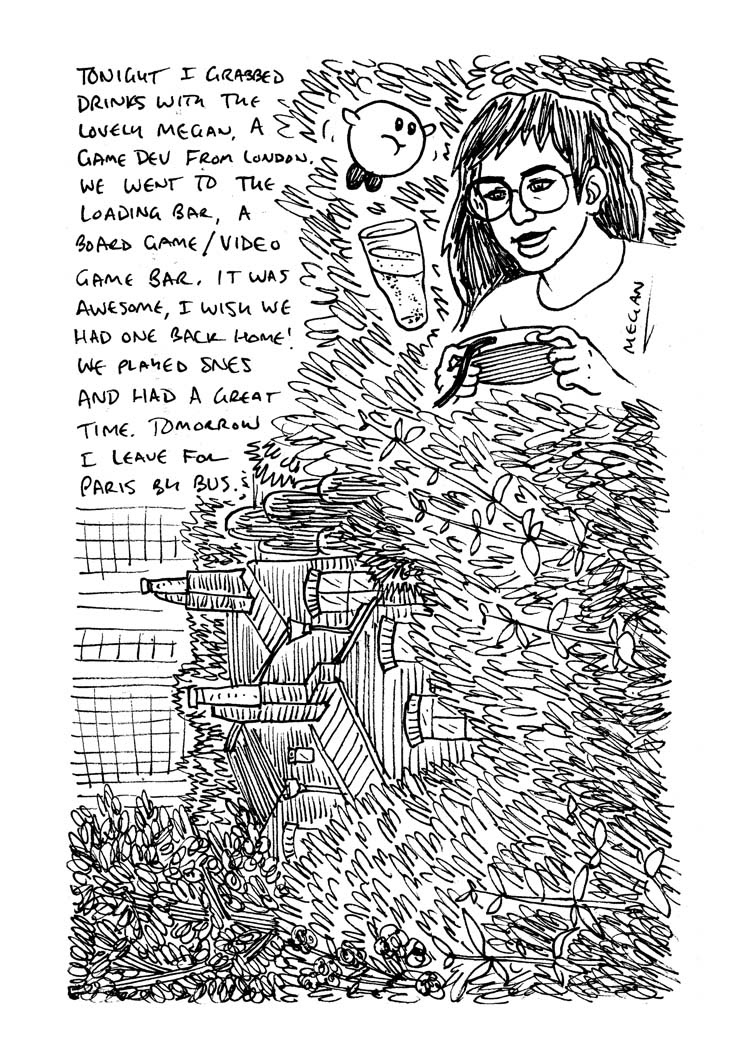 TONIGHT I GRABBED
DRINKS WITH THE
LOVELY MEGAN, A
GAME DEV FROM LONDON.
WE WENT TO THE
LOADING BAR, A
BOARD GAME/VIDEO
GAME BAR. IT WAS
AWESOME, I WISH WE
HAD ONE BACK HOME!
WE PLAYED SNES
AND HAD A GREAT
TIME. TOMORROW
I LEAVE FOR
PARIS BY BUS.
MEGAN